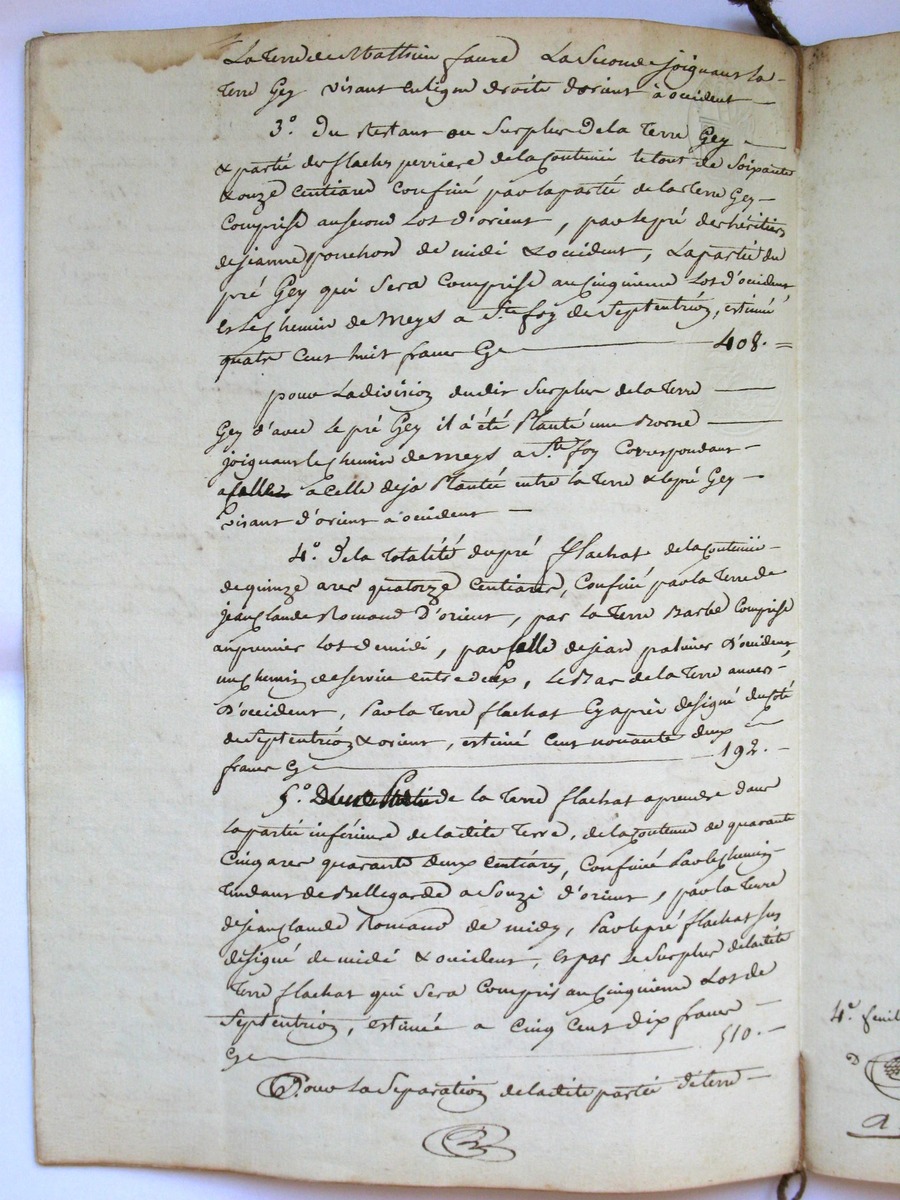 La Terre de Mathieu faure La Seconde joignant la
Terre Gey visant en ligne droite dorient à occident
3.° Du Restant ou Surplus De la Terre Gey
& partie des flaches perriere de la Contenue le tout de Soixante
& onze Centiares Confiné par la partie de la Terre Gey
Comprise au second Lot d'orient, par le pré des héritiers
de jeanne ponchon de midi & occident, La partie du
pré Gey qui Sera Comprise au Cinquieme Lot d'occident
et Le Chemin de Meys a Ste foy de Septentrion, estimé
quatre Cent huit francs Cy 408.=
pour La division dudit Surplus de la Terre
Gey d'avec Le pré Gey il à été Planté une Borne
joignant le Chemin de Meys a Ste foy Correspondant
a celle deja Plantée entre la Terre & le pré Gey
Visant d'orient à occident
4.° De la Totalité du pré flachat de la Contenue
de quinze ares quatorze Centiares, Confiné par la Terre de
jean Claude Romand D'orient, par la Terre Barbe Comprise
au premier Lot de midi, par celle de jean palmier D'occident
un Chemin de service entre deux, Le Bas de la Terre
D'occident, Par la Terre flachat Cy après désigné du Coté
de Septentrion & orient, estimé Cent nonante deux
francs Cy 192.
5.° De la Terre flachat a prendre dans
la partie inférieure de la dite Terre, de la Contenue de quarante
Cinq ares quarante deux Centiares, Confinée Par le Chemin
Tendant de Bellegarde a Souzi d'orient, par la Terre
de jean Claude Romand de midy, Par le pré flachat sus
désigné de midi & occident, et par Le Surplus de la dite
Terre flachat qui Sera Compris au Cinquieme Lot de
Septentrion, estimée a Cinq Cent dix francs
Cy 510.
Pour La Séparation de la dite partie de terre
4.e feuil